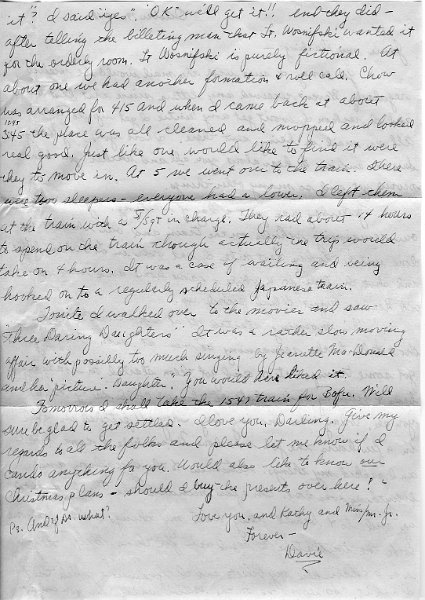 it"? I said "yes". "OK" will get it!! and they did -
after telling the billeting men that Lt. Wosnifski wanted it
for the orderly room. Lt Wosnifski is purely fictional. At
about one we had another formation & roll call. Chow
was arranged for 415 and when I came back at about
345 the place was all cleaned and mopped and looked
real good. Just like one would like to find it were
they to move in. At 5 we went over to the train. There
were two sleepers - everyone had a lower. I left them
at the train with a S/Sgt in charge. They had about 14 hours
to spend on the train though actually the trip would
take on 4 hours. It was a case of waiting and being
hooked on to a regularly scheduled Japanese train.
Tonite I walked over to the movies and saw
"Three Daring Daughters" It was a rather slow moving
affair with possibly too much singing by Jeanette McDonald
and her picture "Daughter". You would have liked it.
Tomorrow I shall take the 1541 train for Bofu. Will
sure be glad to get settled. I love you, Darling. Give my
regards to all the folks and please let me know if I
can anything for you. Would also like to know our
Christmas plans - should I buy the presents over here! -
Love you, and Kathy and Jr.
Ps. And what?
Forever -
Dave